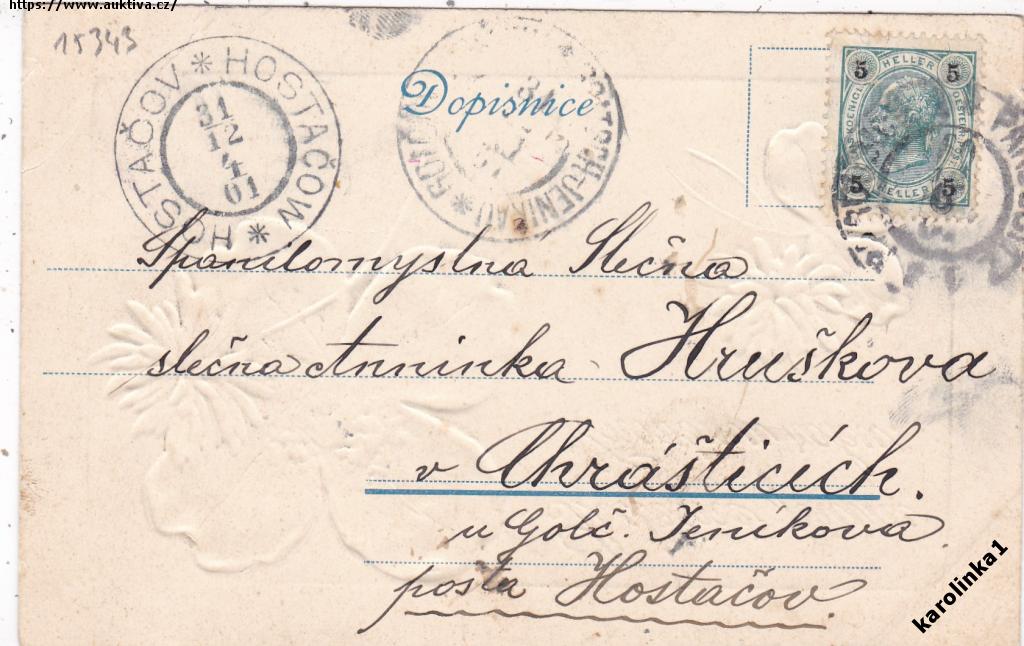 https://www.auktiva.cz/
15343
HOSTAČOV * HOSTAČOW *
31
12
4
01
GOLTSCH-JENIKAU *
Dopisnice
5 HELLER 5
5 HELLER 5
Spanilomyslna Slečna
slečna Anninka Hruškova
v Chrášticích.
u Golč. Jeníkova.
pošta Hostačov.
karolinka1